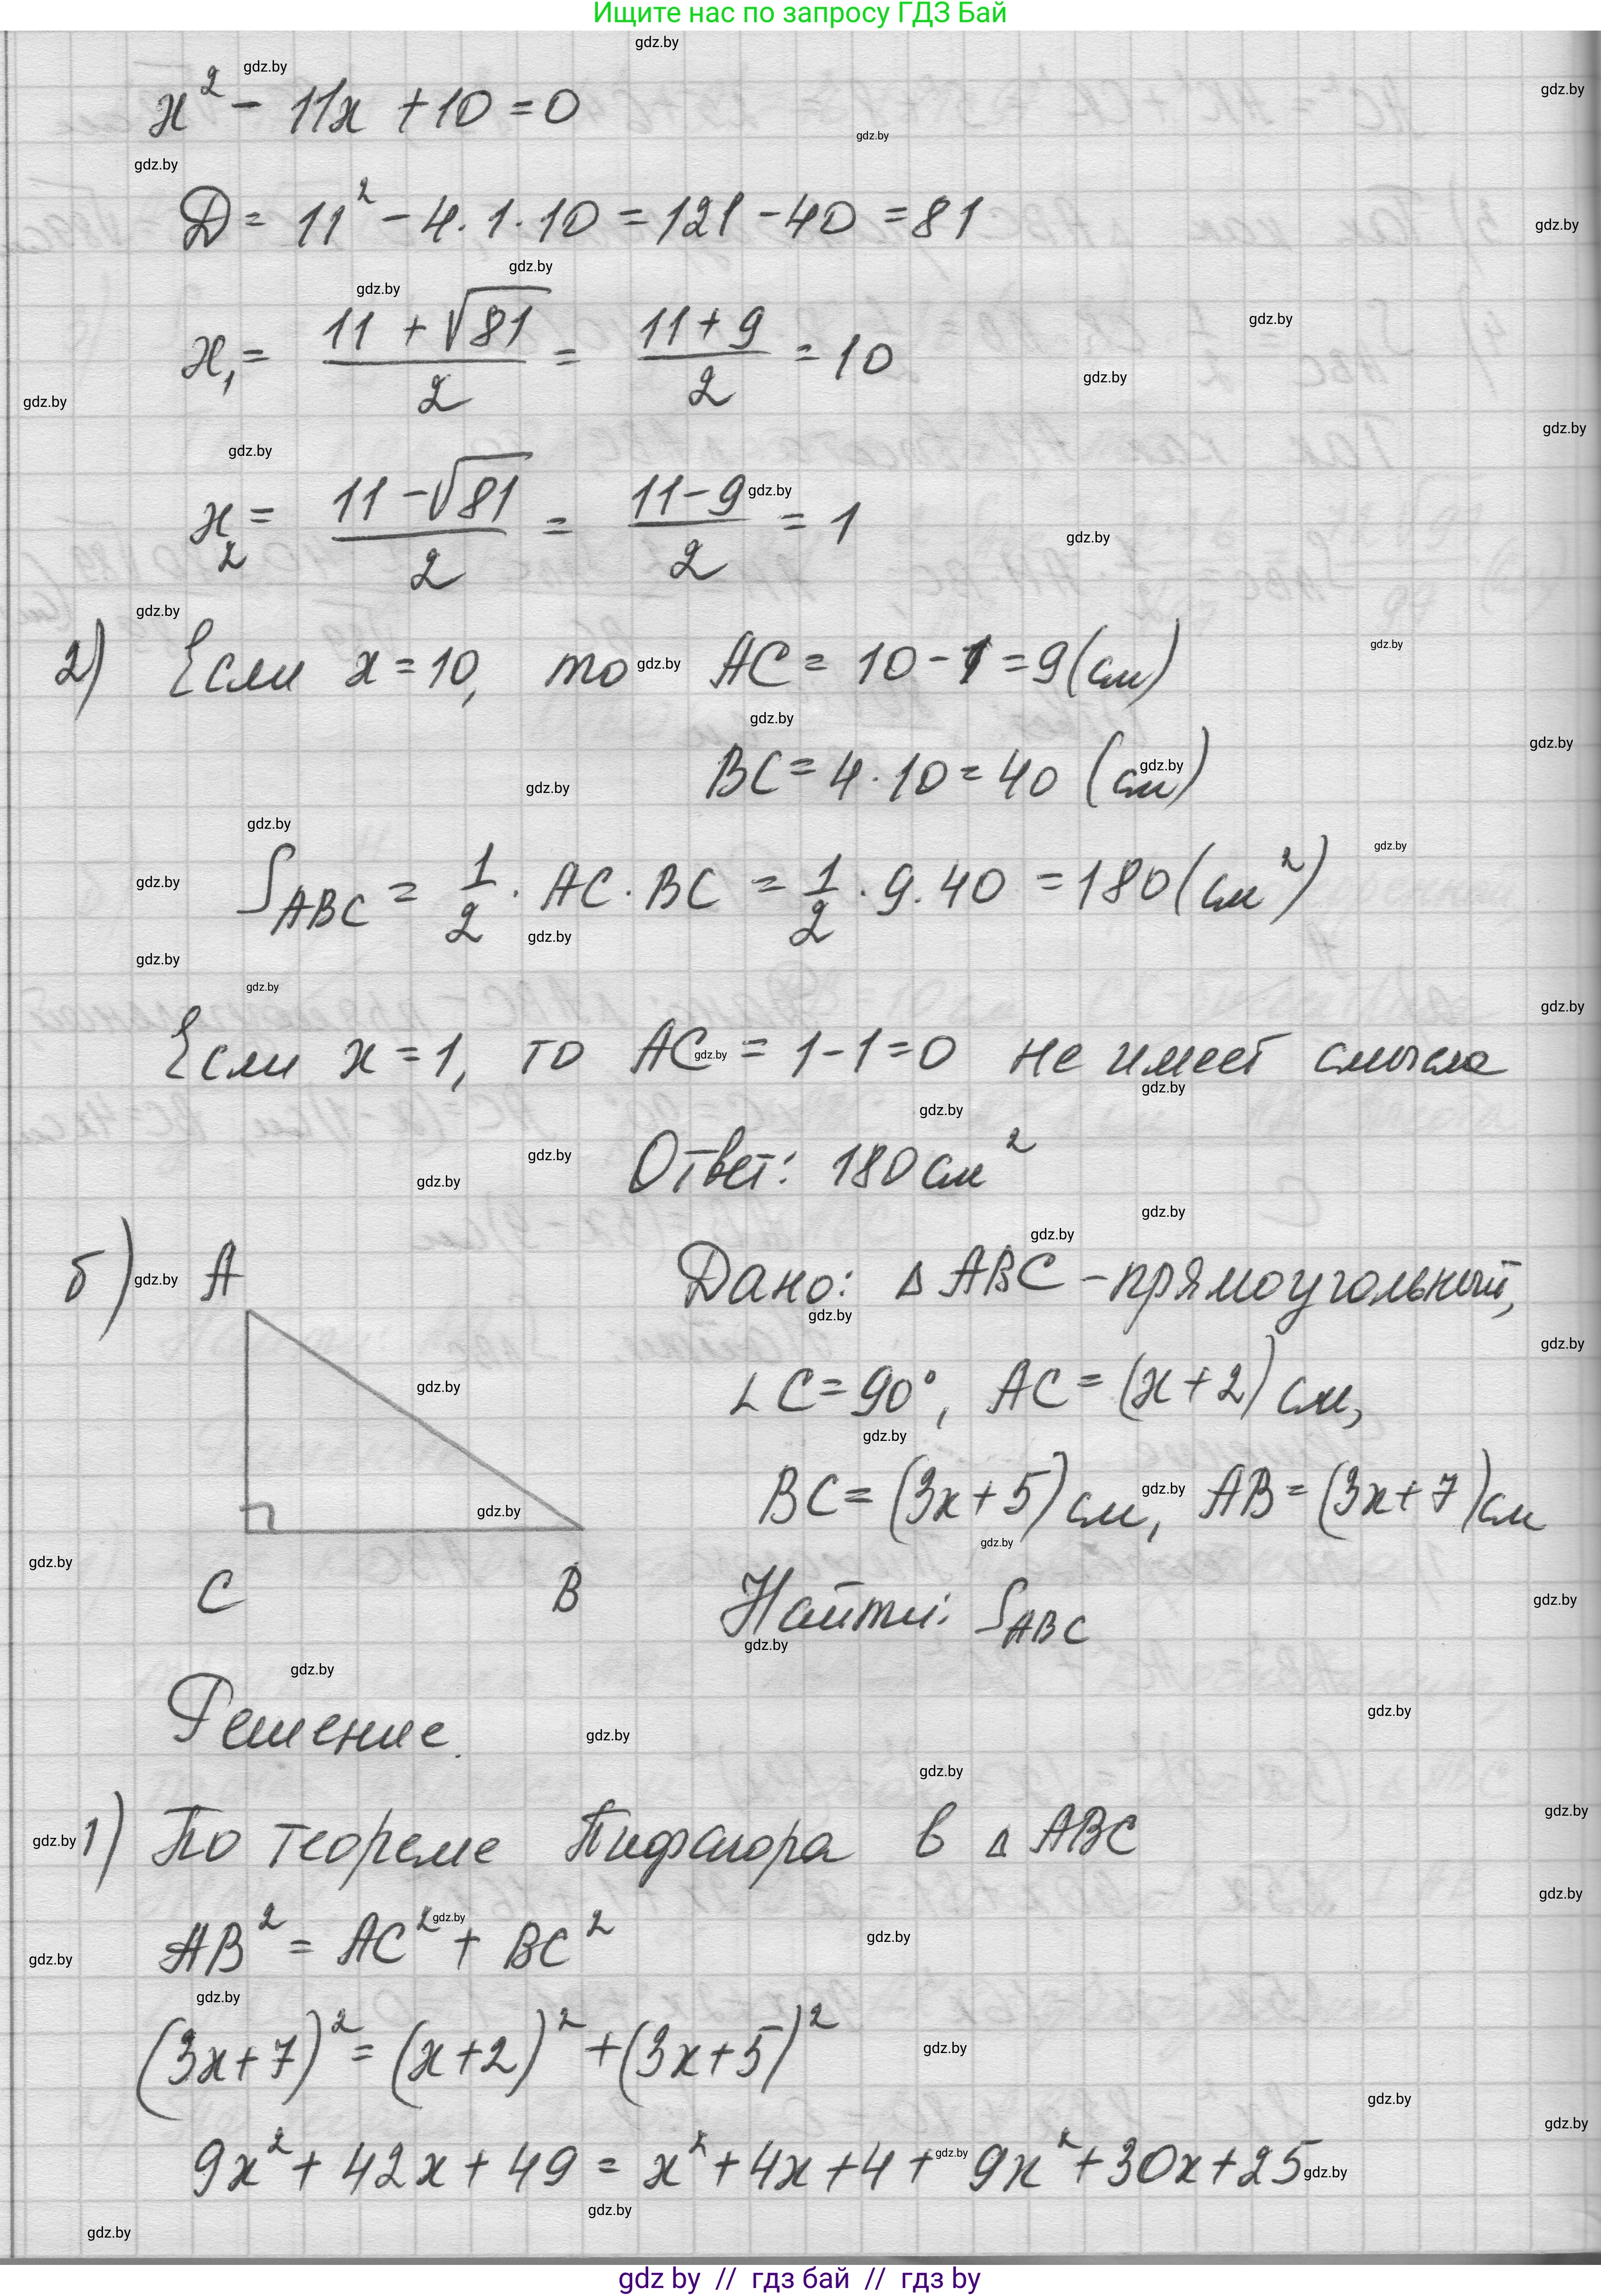 Ищите нас по запросу ГДЗ Бай
x² - 11x + 10 = 0
D = 11² - 4 · 1 · 10 = 121 - 40 = 81
x₁ = (11 + √81)/2 = (11 + 9)/2 = 10
x₂ = (11 - √81)/2 = (11 - 9)/2 = 1
2) Если x = 10, то AC = 10 - 1 = 9 (см)
BC = 4 · 10 = 40 (см)
S_ABC = 1/2 · AC · BC = 1/2 · 9 · 40 = 180 (см²)
Если x = 1, то AC = 1 - 1 = 0 не имеет смысла
Ответ: 180 см²
б) A
C B
Дано: Δ ABC - прямоугольный,
∠C = 90°, AC = (x + 2) см,
BC = (3x + 5) см, AB = (3x + 7) см
Найти: S_ABC
Решение.
1) По теореме Пифагора в Δ ABC
AB² = AC² + BC²
(3x + 7)² = (x + 2)² + (3x + 5)²
9x² + 42x + 49 = x² + 4x + 4 + 9x² + 30x + 25
gdz by // гдз бай // гдз by